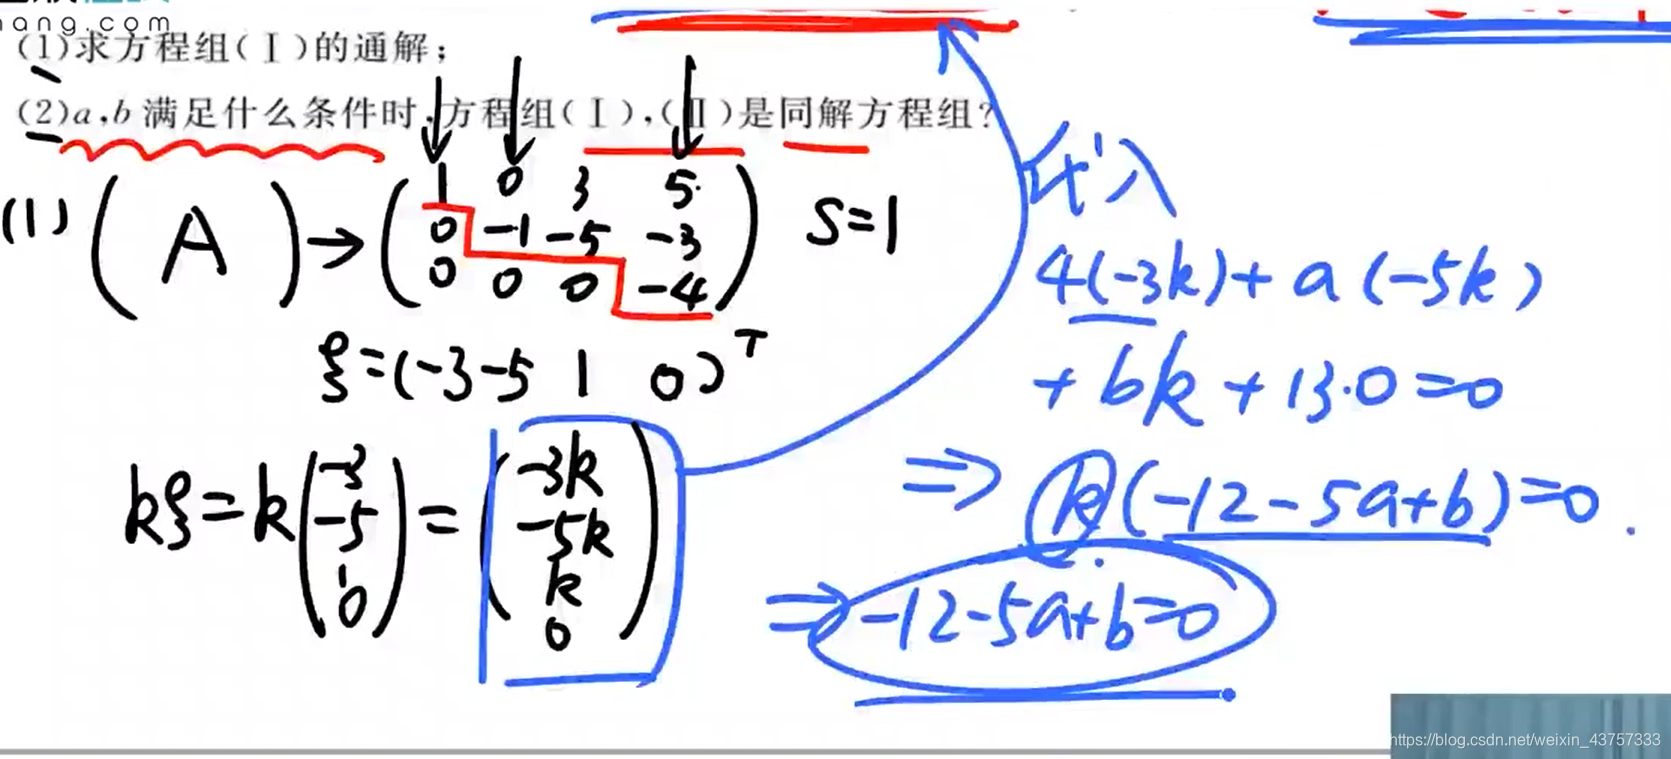 ang.com
(1)求方程组(Ⅰ)的通解;
(2)a,b满足什么条件时,方程组(Ⅰ),(Ⅱ)是同解方程组?
(1) (A) → ( 1 0 3 5
0 -1 -5 -3
0 0 0 -4 ) S=1
ξ=(-3 -5 1 0)ᵀ
kξ=k(-3 -5 1 0)=(-3k -5k k 0)
代入
4(-3k)+a(-5k)
+bk+13·0=0
⇒ k(-12-5a+b)=0.
⇒ -12-5a+b=0
https://blog.csdn.net/weixin_43757333